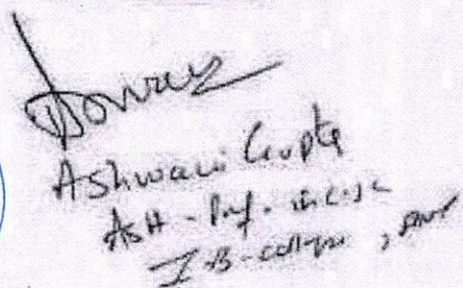 Ashwani Gupta
Asst. Prof. in C.Sc
I.B. College,